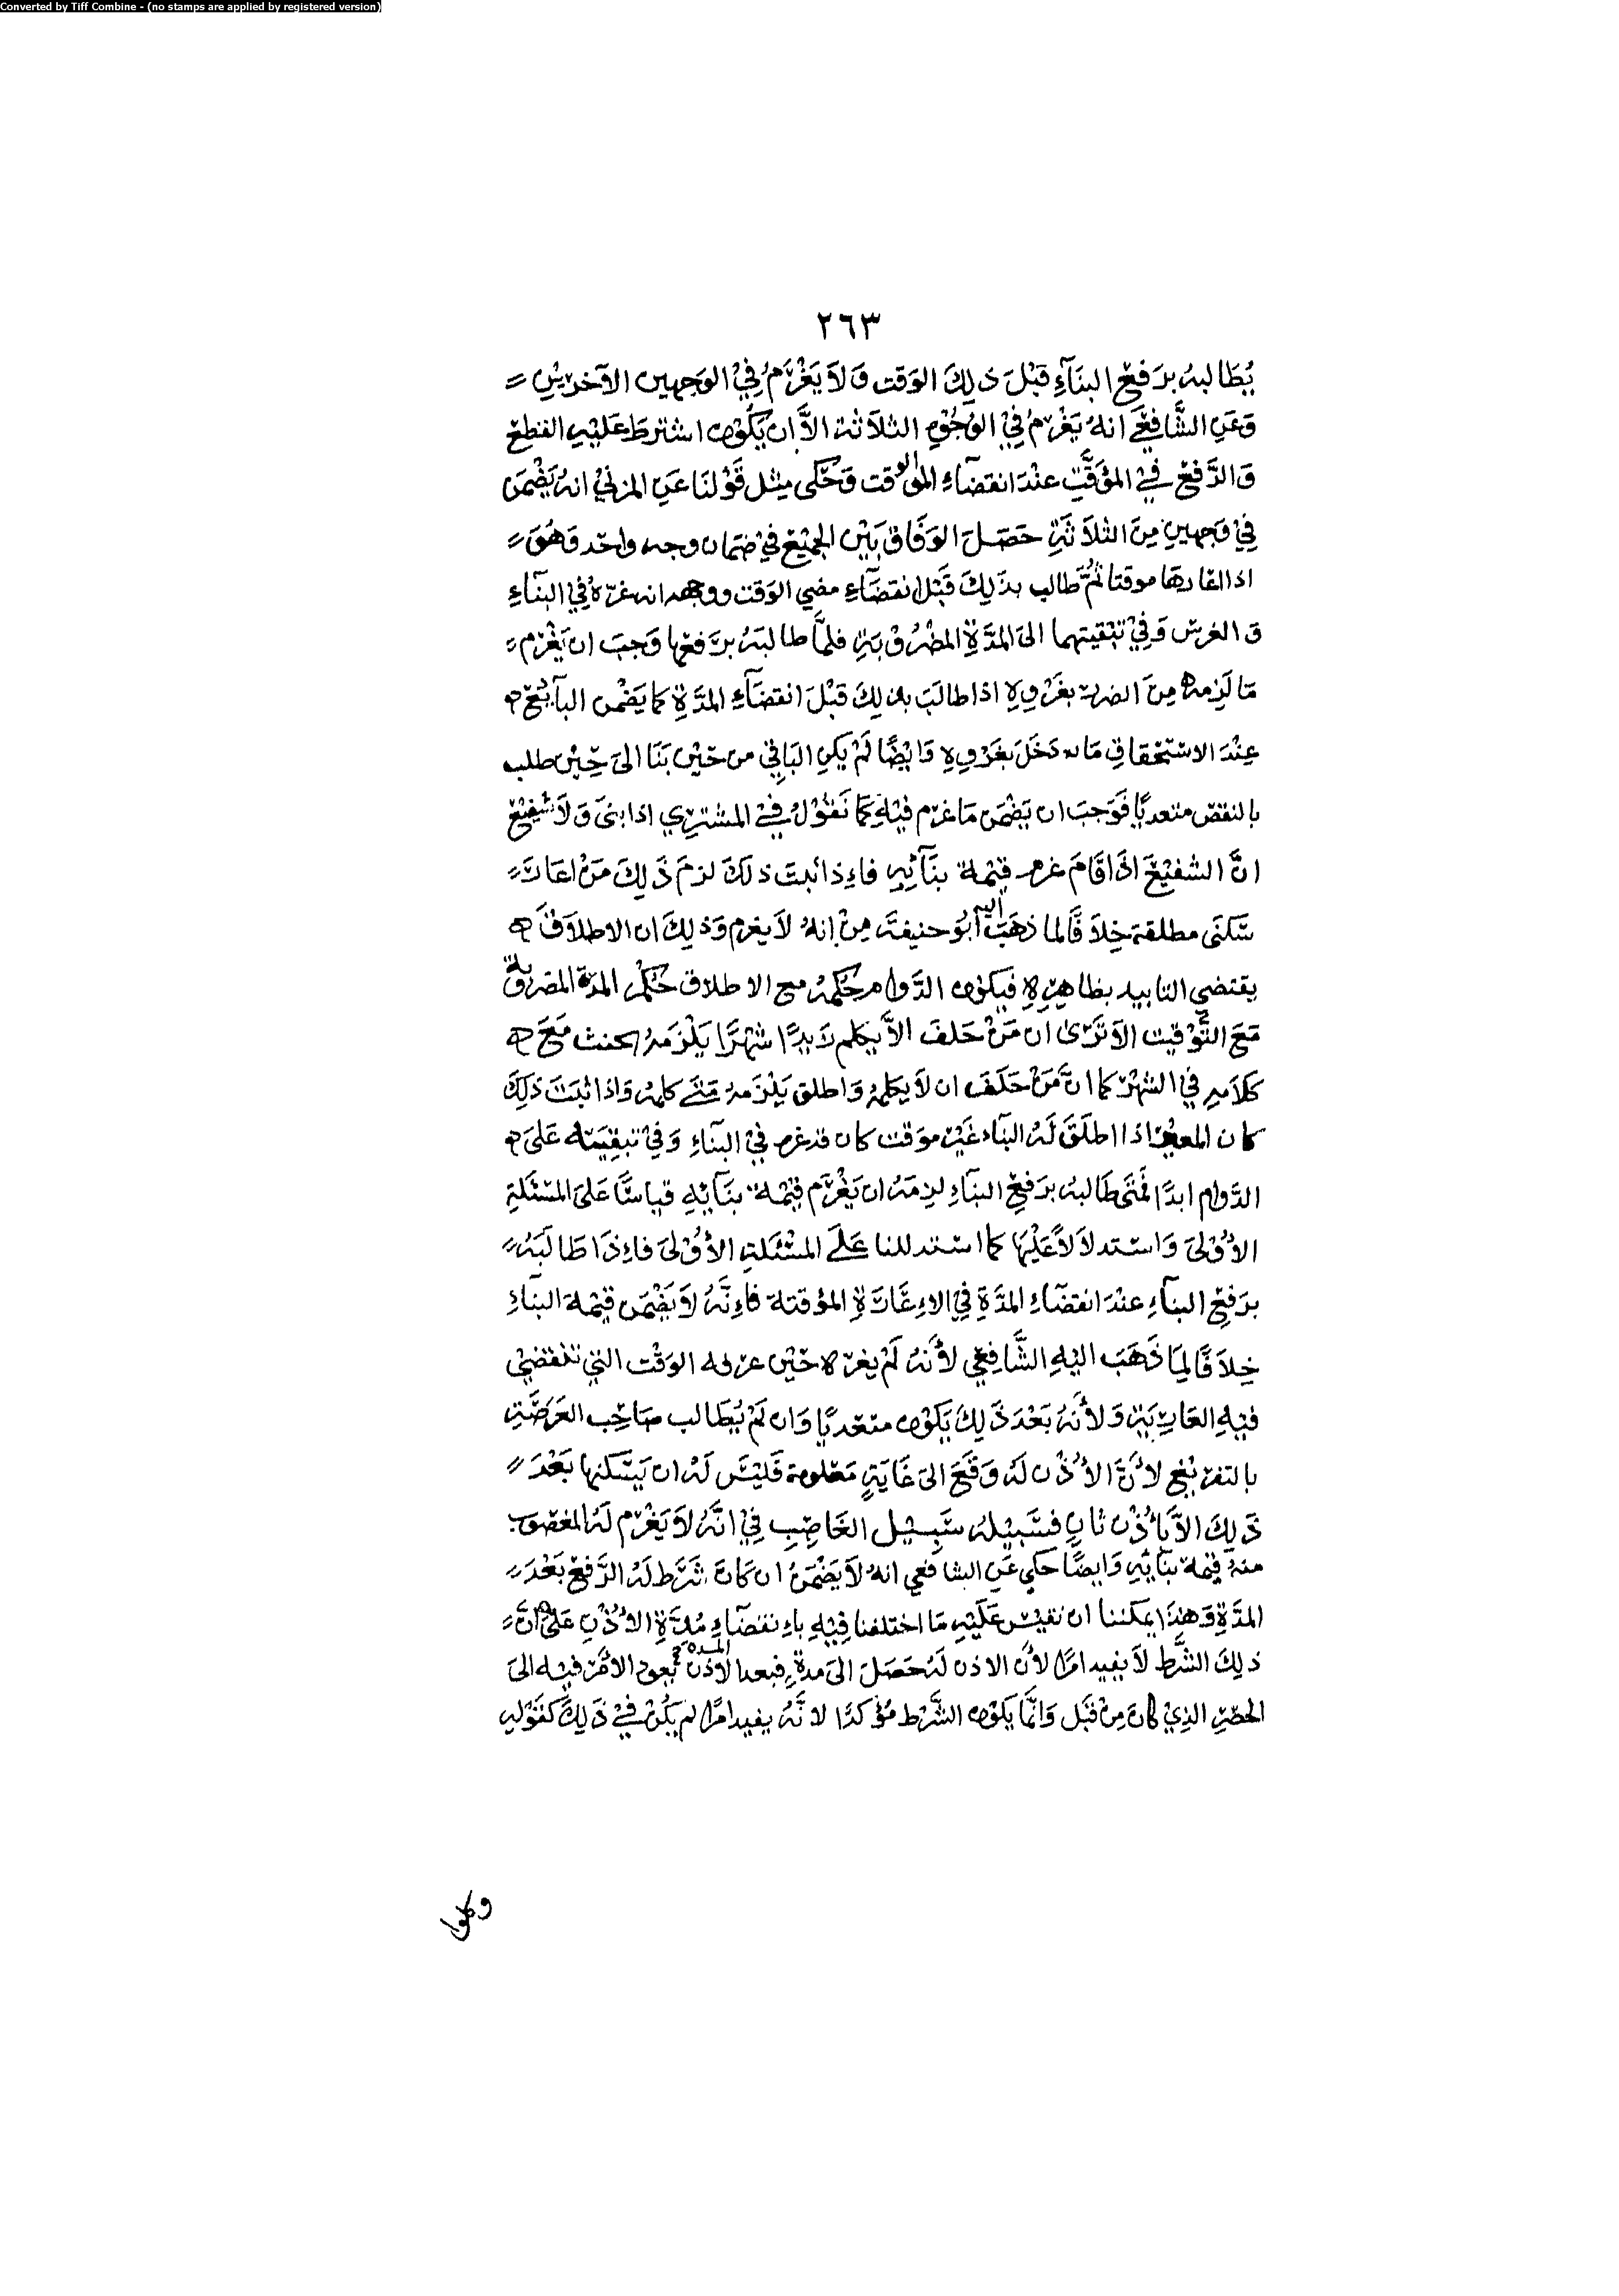 Converted by Tiff Combine - (no stamps are applied by registered version)
٢٦٣
يُطَالبهُ برَفعِ البنَآءِ قَبْلَ ذلِكَ الوَقت وَلاَ يَغْرَمُ فِيْ الوَجهين الآخريْنِ
وَعَنِ الشَّافِعِّي انهُ يَغْرَمُ فِيْ الوُجُوْهِ الثلاَثة الاَّ ان يَّكُوْن اشترطَ عَليْهِ القطع
وَالدَّفع فيْ المؤقَّتِ عنْدَ انقضَآءِ الوقت وَحُكى مثل قَوْلنَا عَنِ المزنيْ انهُ يَضْمَن
فِيْ وَجهينِ مِنَ الثلاَثةِ حَصَلَ الوَفَاق بَيْن الجَمِيْعِ فيْ ضمَان وجه واحد وَهُوَ
اذا اعَارهَا موقتا ثُمَّ طالب بذَلِكَ قَبْل انقضَآءِ مضي الوَقت ووجهه انه غرّهُ فيْ البنَآءِ
وَ الغرس وَفيْ تبْقيتهما الىَ المدَّةِ المضْرُوْبَةِ فلمَّا طَالبَهُ برَفعهَا وَجبَ ان يَغْرَم
مَا لَزِمهُ مِنَ الضرر بغَرُورِهِ اذا طَالبَ بذلِكَ قبْلَ انقضَآءِ المدَّةِ كما يَضْمن البآئع
عِنْدَ الاسْتحْقاقِ مَا دَخَلَ بغَرُورِهِ وَايْضًا لَمْ يكنِ البَانِي من حَيْن بَنَا الىَ حِيْن طلب
بالنقض متعديًا فوَجبَ ان يَضْمَن مَا غرم فيْهِ كمَا نَقُوْلُ فيْ المشتري اذا بنىَ وَلاَ شفِيْع
انَّ الشفيْعَ اذَا قَامَ غرم قيْمة بنَآئِهِ فاءِذا ثبتَ ذلكَ لزمَ ذَلِكَ مَنْ اعَارَ
سَكنَى مطلقة خِلاَفًا لما ذهَبَ اليه أبُو حنيفَة مِنْ انهُ لاَ يغرم وَذلِكَ ان الاطلاَقَ
يقتضي التابيد بظاهِرِهِ فيكوْن الدَّوام حُكمهُ مع الاطلاق حُكْم المدّة المضروْبة
مَعَ التَّوْقيت الاَ تَرَىٰ انَ مَنْ حَلفَ الاَّ يكلم زيدًا شهْرًا يَلْزَمهُ الحنث مَعَ
كلاَمهِ فيْ الشهْر كما انَّ مَنْ حَلَفَ ان لاَ يكلمهُ وَاطلق يَلْزمهُ مَتَى كلمهُ وَاذا ثبَتَ ذلِكَ
كان المعيْر اذا اطلَقَ لَهُ البنَاء غَيْر موَقت كان قد غرم فيْ البنَآءِ وَفيْ تبقيَته عَلىَ
الدَّوام ابدًا فمَتَى طَالبهُ برَفع البنَاءِ لزمَهُ ان يَغْرَم قيْمة بنَآئِهِ قياسًا عَلىَ المسْئلةِ
الأوْلىَ وَاسْتدلاَلاً عَليْهَا كما اسْتدللنا عَلَى المسْئَلةِ الأوْلىَ فاءِذَا طَالَبَهُ
برَفعِ البنَآءِ عنْدَ انقضَآءِ المدَّةِ فيْ الاِعَارَةِ المؤقتة فاءِنَّهُ لاَ يَضْمَن قيْمة البناءِ
خِلاَفًا لِمَا ذَهَبَ اليْهِ الشَّافِعِي لأنهُ لَمْ يغرّه حيْن عرفه الوَقْت التي تنقضيْ
فيْهِ العَاريَةِ وَلأنهُ بَعْدَ ذَلِكَ يَكوْن متعديًا وَان لَمْ يُطَالب صَاحِب العَرْصَةِ
بالتفريْغ لأنَّ الأُذْن لهُ وَقَعَ الىَ غَايَةٍ مَعْلومة فَليْسَ لَهُ ان يَسْكنهَا بَعْدَ
ذَلِكَ الاَّ بأذْن ثانٍ فسَبيْلهُ سَبِيْل الغَاصِبِ فِيْ انَّهُ لاَ يَغْرم لَهُ المغصوب
منهُ قيْمة بنآئِهِ وَايضًا حكي عَنِ الشافعي انهُ لاَ يَضْمَنُ ان كَانَ شَرَط لَهُ الرَّفع بَعْدَ
المدَّةِ وَهٰذَا يمكننا ان نقيْس عَليْهِ مَا اختلفنا فِيْهِ باِنقضَآءِ مُدَّةِ الأُذْنِ عَلىَ انَّ
ذلِكَ الشَّرط لاَ يفيد امرًا لأن الاذن لهُ حَصَلَ الىَ مدةٍ فبعد الاذن المده يعود الأمْر فيْه الىَ
الحصْرِ الذِيْ كانَ مِنْ قبْل وَانمَّا يكوْن الشَّرط مؤكدًا لانَّهُ يفيد امرًا لم يكُنْ فيْ ذَلِكَ كقوْلهِ